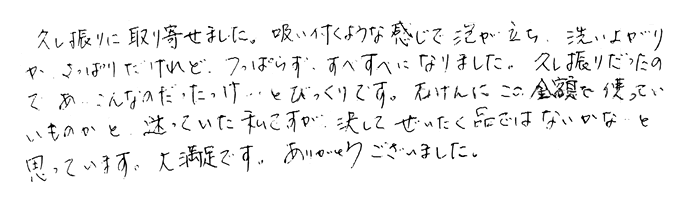 久し振りに取り寄せました。吸い付くような感じで泡が立ち、洗い上がり
が、さっぱりだけれど、つっぱらず、すべすべになりました。久し振りだったの
で、あ…こんなのだったっけ…とびっくりです。石けんにこの金額を使ってい
いものかと、迷っていた私ですが、決してぜいたく品ではないかな…と
思っています。大満足です。ありがとうございました。